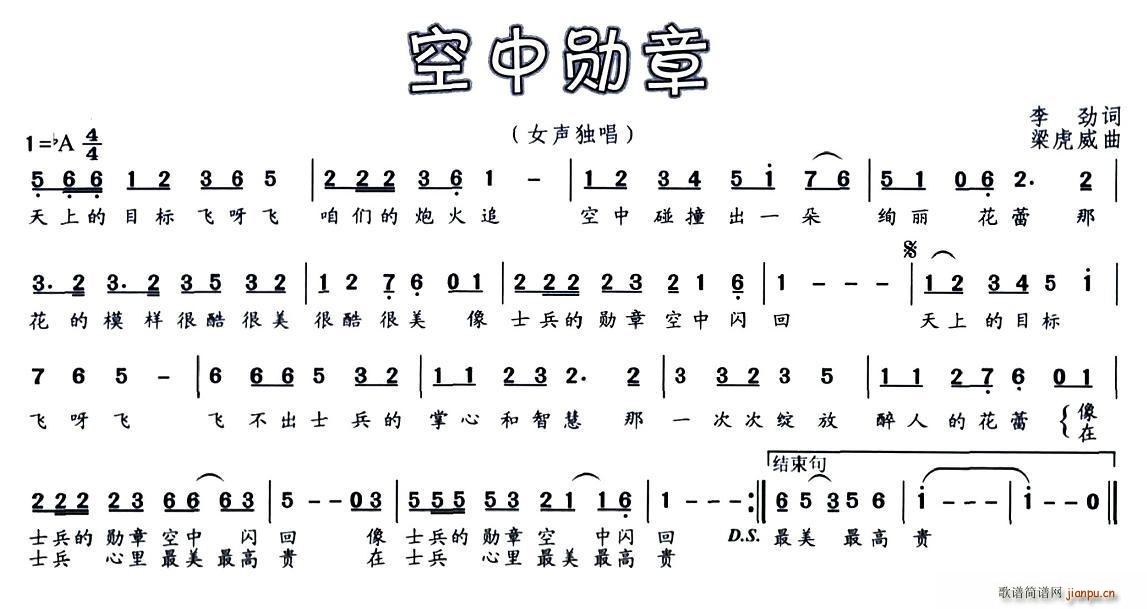 空中勋章
（女声独唱）
李 劲词
梁虎威曲
1=♭A 4/4
5 6 6 1 2 3 6 5 | 2 2 2 3 6 1 － | 1 2 3 4 5 i 7 6 | 5 1 0 6 2· 2 |
天上的目标飞呀飞 咱们的炮火追 空中碰撞出一朵 绚丽 花蕾 那
3· 2 3· 2 3 5 3 2 | 1 2 7 6 0 1 | 2 2 2 2 3 2 1 6 | 1 － － － | 𝄋 1 2 3 4 5 i |
花的模样很酷很美 很酷很美 像 士兵的勋章空中闪回 天上的目标
7 6 5 － | 6 6 6 5 3 2 | 1 1 2 3 2· 2 | 3 3 2 3 5 | 1 1 2 7 6 0 1 |
飞呀飞 飞不出士兵的 掌心和智慧 那 一次次绽放 醉人的花蕾 {像
在
结束句
2 2 2 2 3 6 6 6 3 | 5 － － 0 3 | 5 5 5 5 3 2 1 1 6 | 1 － － － :‖ 6 5 3 5 6 | i － － － | i － － 0 ‖
士兵的 勋章空中 闪回 像 士兵的勋章空 中闪回 D.S. 最美 最高贵
士兵 心里最美最高 贵 在 士兵 心里最美最高 贵
歌谱简谱网
jianpu.cn